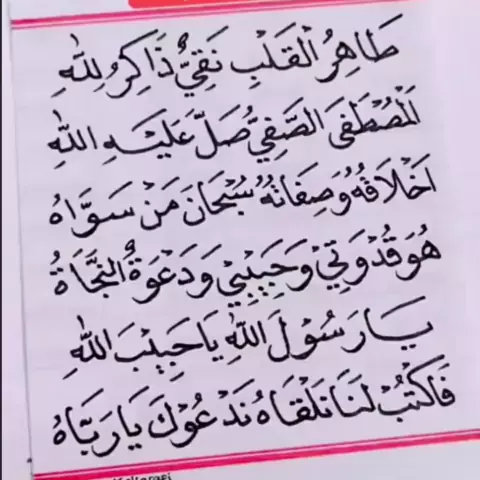 طَاهِرُ الْقَلْبِ نَقِيٌّ ذَاكِرُ لِلّٰهِ
الْمُصْطَفَى الصَّفِيّ صُلَّ عَلَيْهِ اللّٰهِ
اَخْلَاقُهُ وَصِفَاتُهُ سُبْحَانَ مَنْ سَوَّاهُ
هُوَ قُدْوَتِيْ وَحَبِيْبِيْ وَدَعْوَةُ النَّجَاةُ
يَا رَسُوْلَ اللّٰهِ يَا حَبِيْبَ اللّٰهِ
فَاكْتُبْ لَنَا نَلْقَاهُ نَدْعُوْكَ يَا رَبَّاهُ